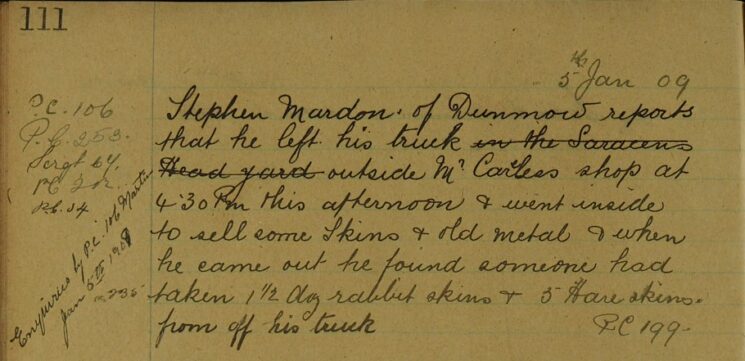 111
5th Jan 09
P.C. 106
P.C. 253.
Sergt 64.
P.C. 34
Enquiries by P.C. 106 Martin
Jan 5th 1909
Stephen Mardon. of Dunmow reports
that he left his truck in the Saracens
Head yard outside Mr Carless shop at
4.30 Pm this afternoon & went inside
to sell some Skins & old metal & when
he came out he found someone had
taken 1½ doz rabbit skins & 5 Hare skins.
from off his truck
P.C 199.